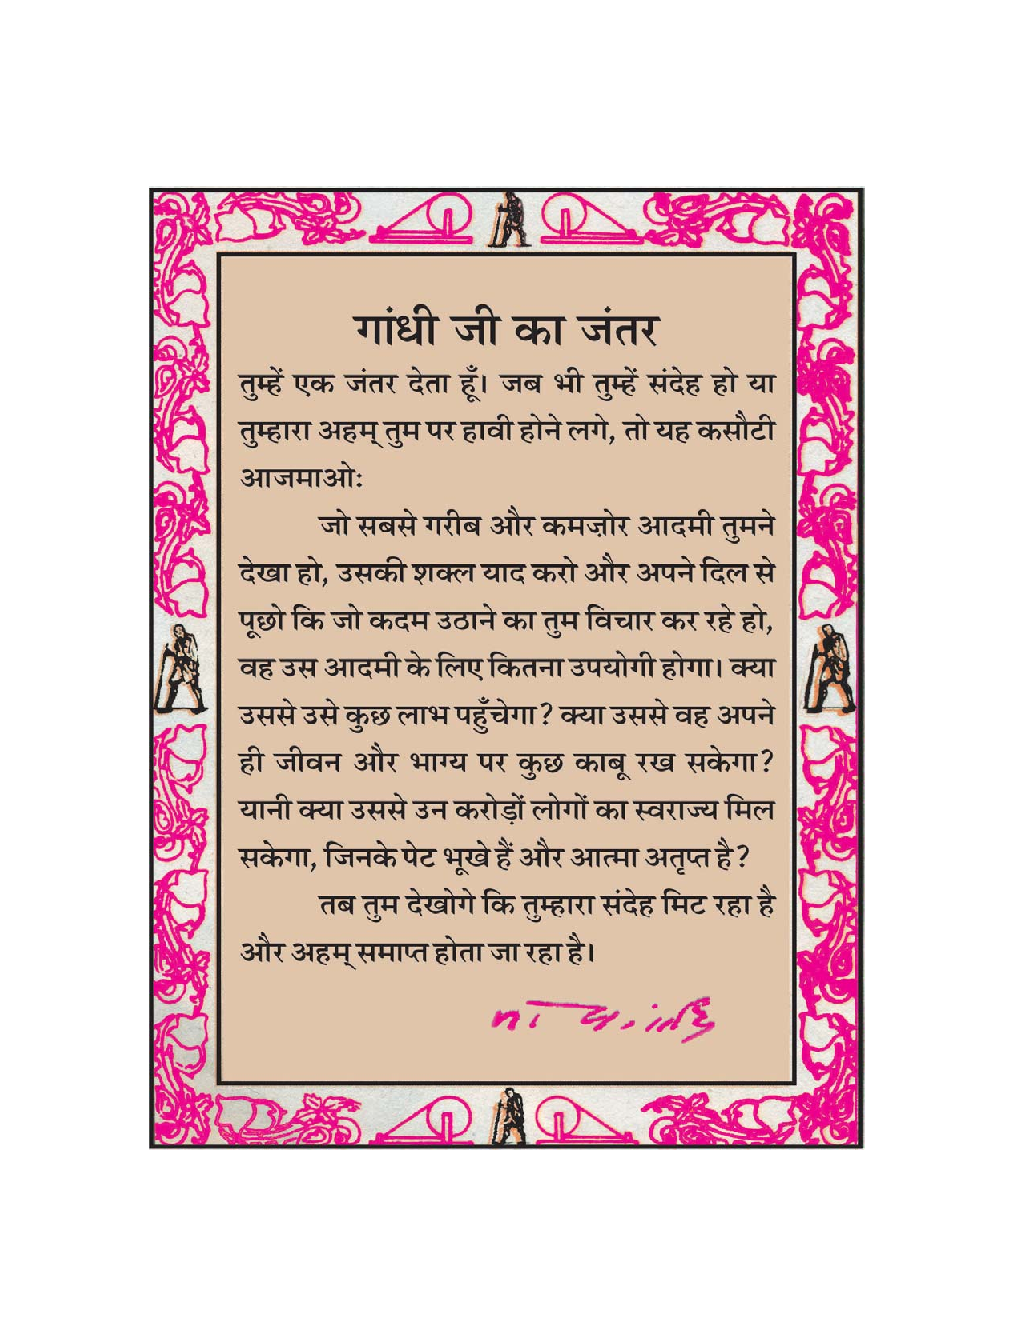 गांधी जी का जंतर
तुम्हें एक जंतर देता हूँ। जब भी तुम्हें संदेह हो या
तुम्हारा अहम् तुम पर हावी होने लगे, तो यह कसौटी
आजमाओः
जो सबसे गरीब और कमज़ोर आदमी तुमने
देखा हो, उसकी शक्ल याद करो और अपने दिल से
पूछो कि जो कदम उठाने का तुम विचार कर रहे हो,
वह उस आदमी के लिए कितना उपयोगी होगा। क्या
उससे उसे कुछ लाभ पहुँचेगा? क्या उससे वह अपने
ही जीवन और भाग्य पर कुछ काबू रख सकेगा?
यानी क्या उससे उन करोड़ों लोगों का स्वराज्य मिल
सकेगा, जिनके पेट भूखे हैं और आत्मा अतृप्त है?
तब तुम देखोगे कि तुम्हारा संदेह मिट रहा है
और अहम् समाप्त होता जा रहा है।